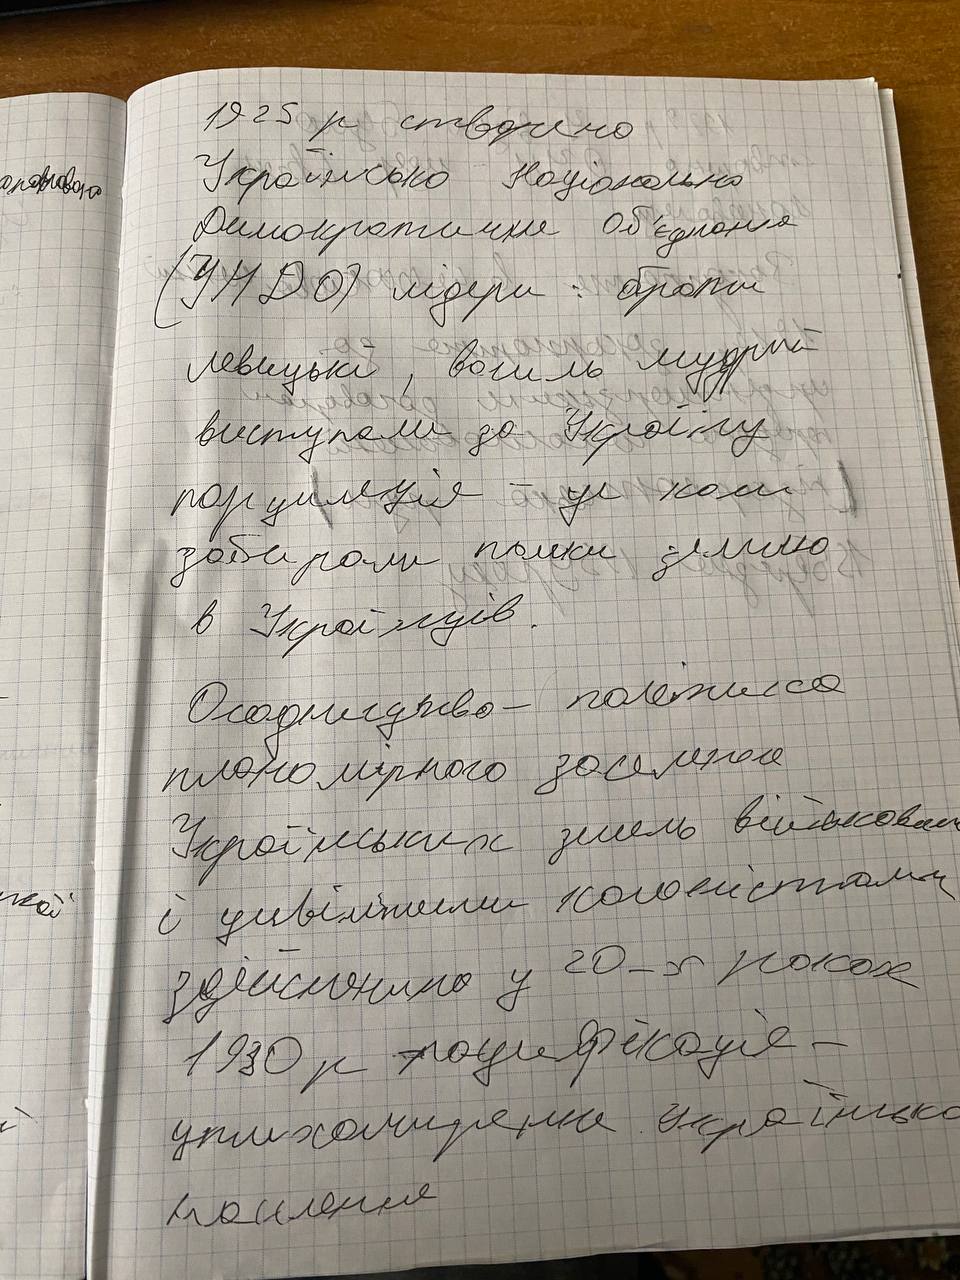 1925 р створено
Українсько Національно
Демократичне Об'єднання
(УНДО) лідери : брати
левицькі , василь мудрий
виступали за Україну
парцеляція – це коли
забирали поляки землю
в Українців.
Осадництво – політика
планомірного заселення
Українських земель військовими
і цивільними колоністами
здійснення у 20-х роках
1930 р пацифікація –
упихомирення Українсько
населення